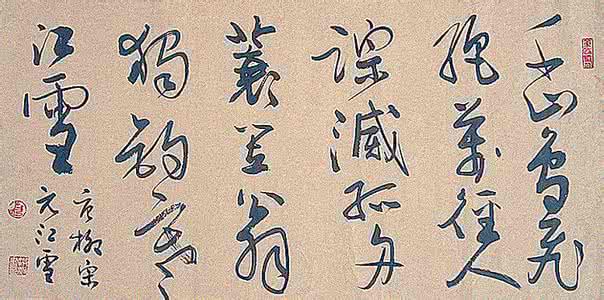 千山鳥飛
絕萬徑人
踪滅孤舟
蓑笠翁
獨釣寒
江雪
唐柳宗
元江雪